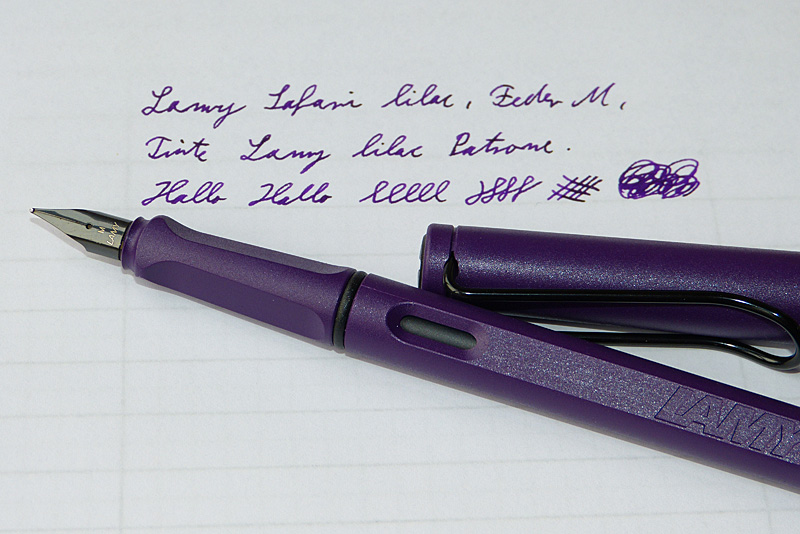 Lamy Safari lilac, Feder M,
Tinte Lamy lilac Patrone.
Hallo Hallo lllll
M
LAMY
LAMY